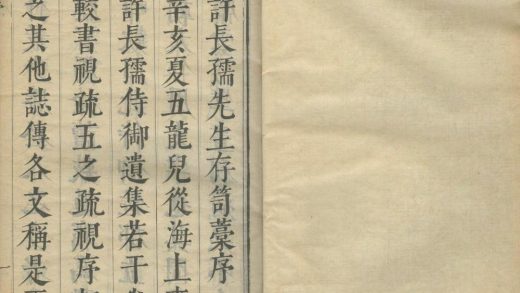 許長孺先生存笥藁序
辛亥夏五龍兒從海上
許長孺侍御遺集若干
較書視疏五之疏視序
之其他誌傳各文稱是